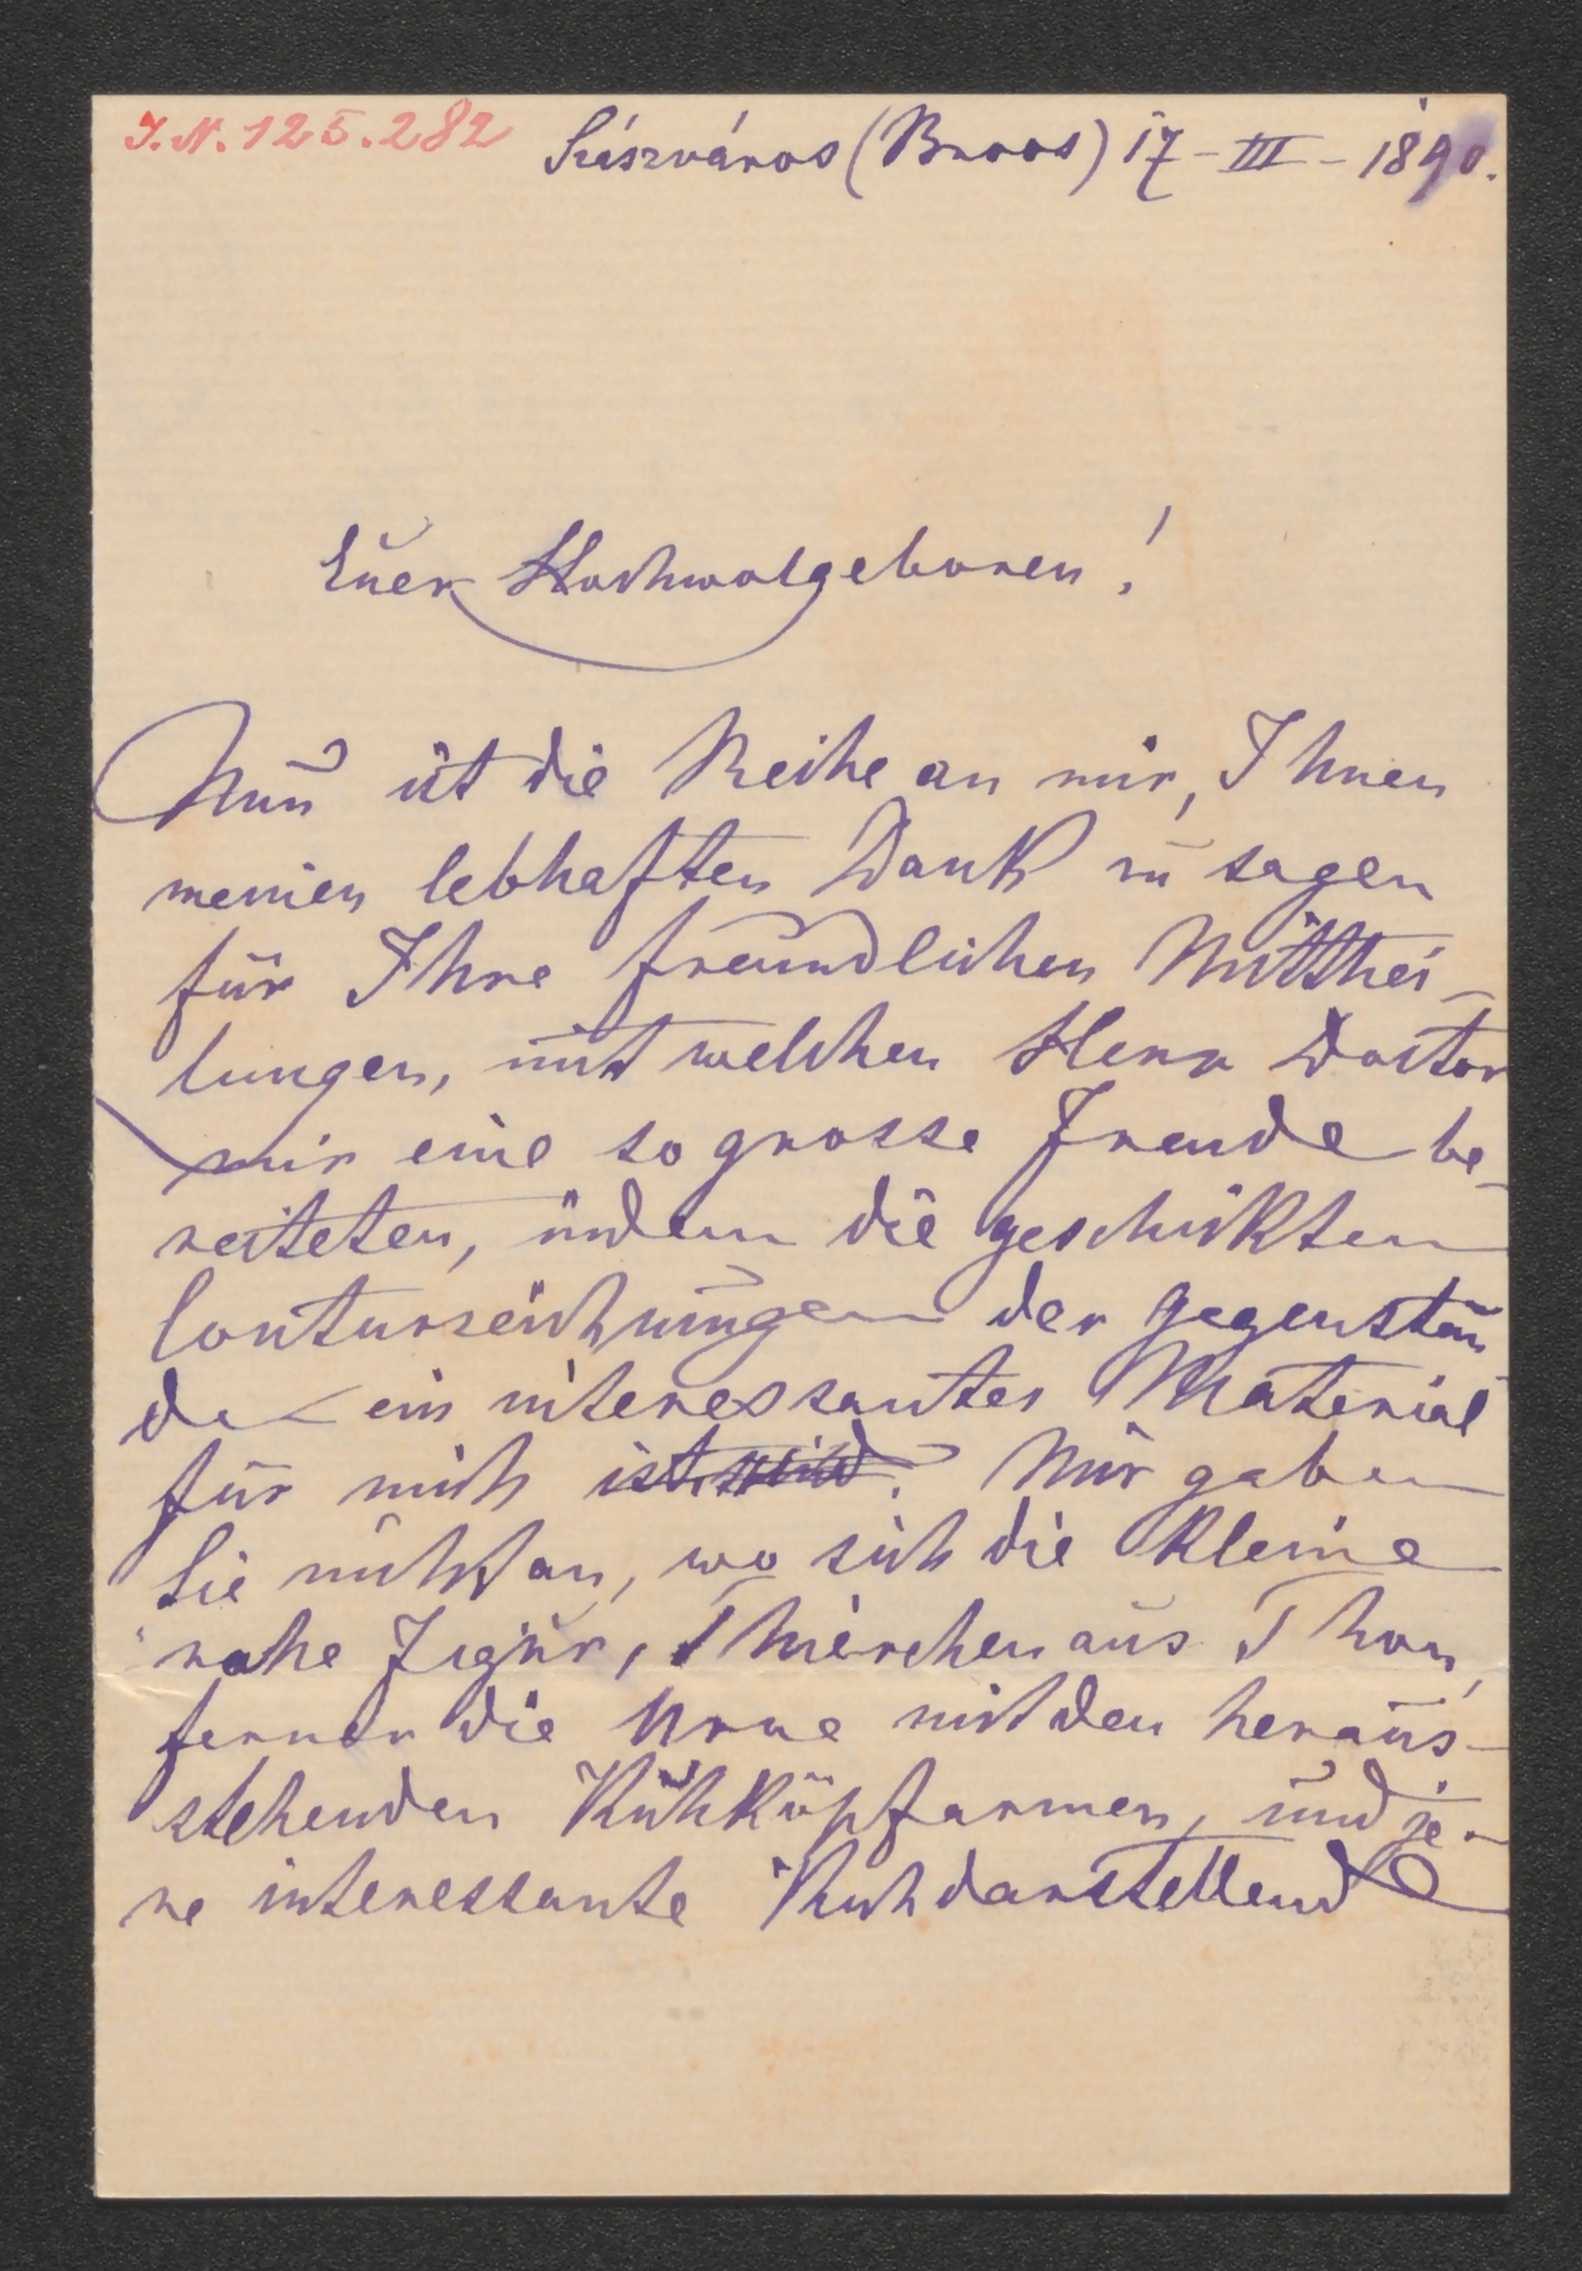 I.N. 125.282
Szászváros (Broos) 17-III-1890.
Euer Hochwolgeboren!
Nun ist die Reihe an mir, Ihnen
meinen lebhaften Dank zu sagen
für Ihre freundlichen Mitthei-
lungen, mit welchen Herr Doctor
mir eine so grosse Freude be-
reiteten, indem die geschickten
Conturzeichnungen der Gegenstän
de ein interessantes Material
für mich ist. Mir gaben
Sie nicht an, wo sich die kleine
rohe Figur, Thierchen aus Thon,
ferner die Urne mit den heraus-
stehenden Kuhköpfarmen, und je-
ne interessante Kuhdarstellend